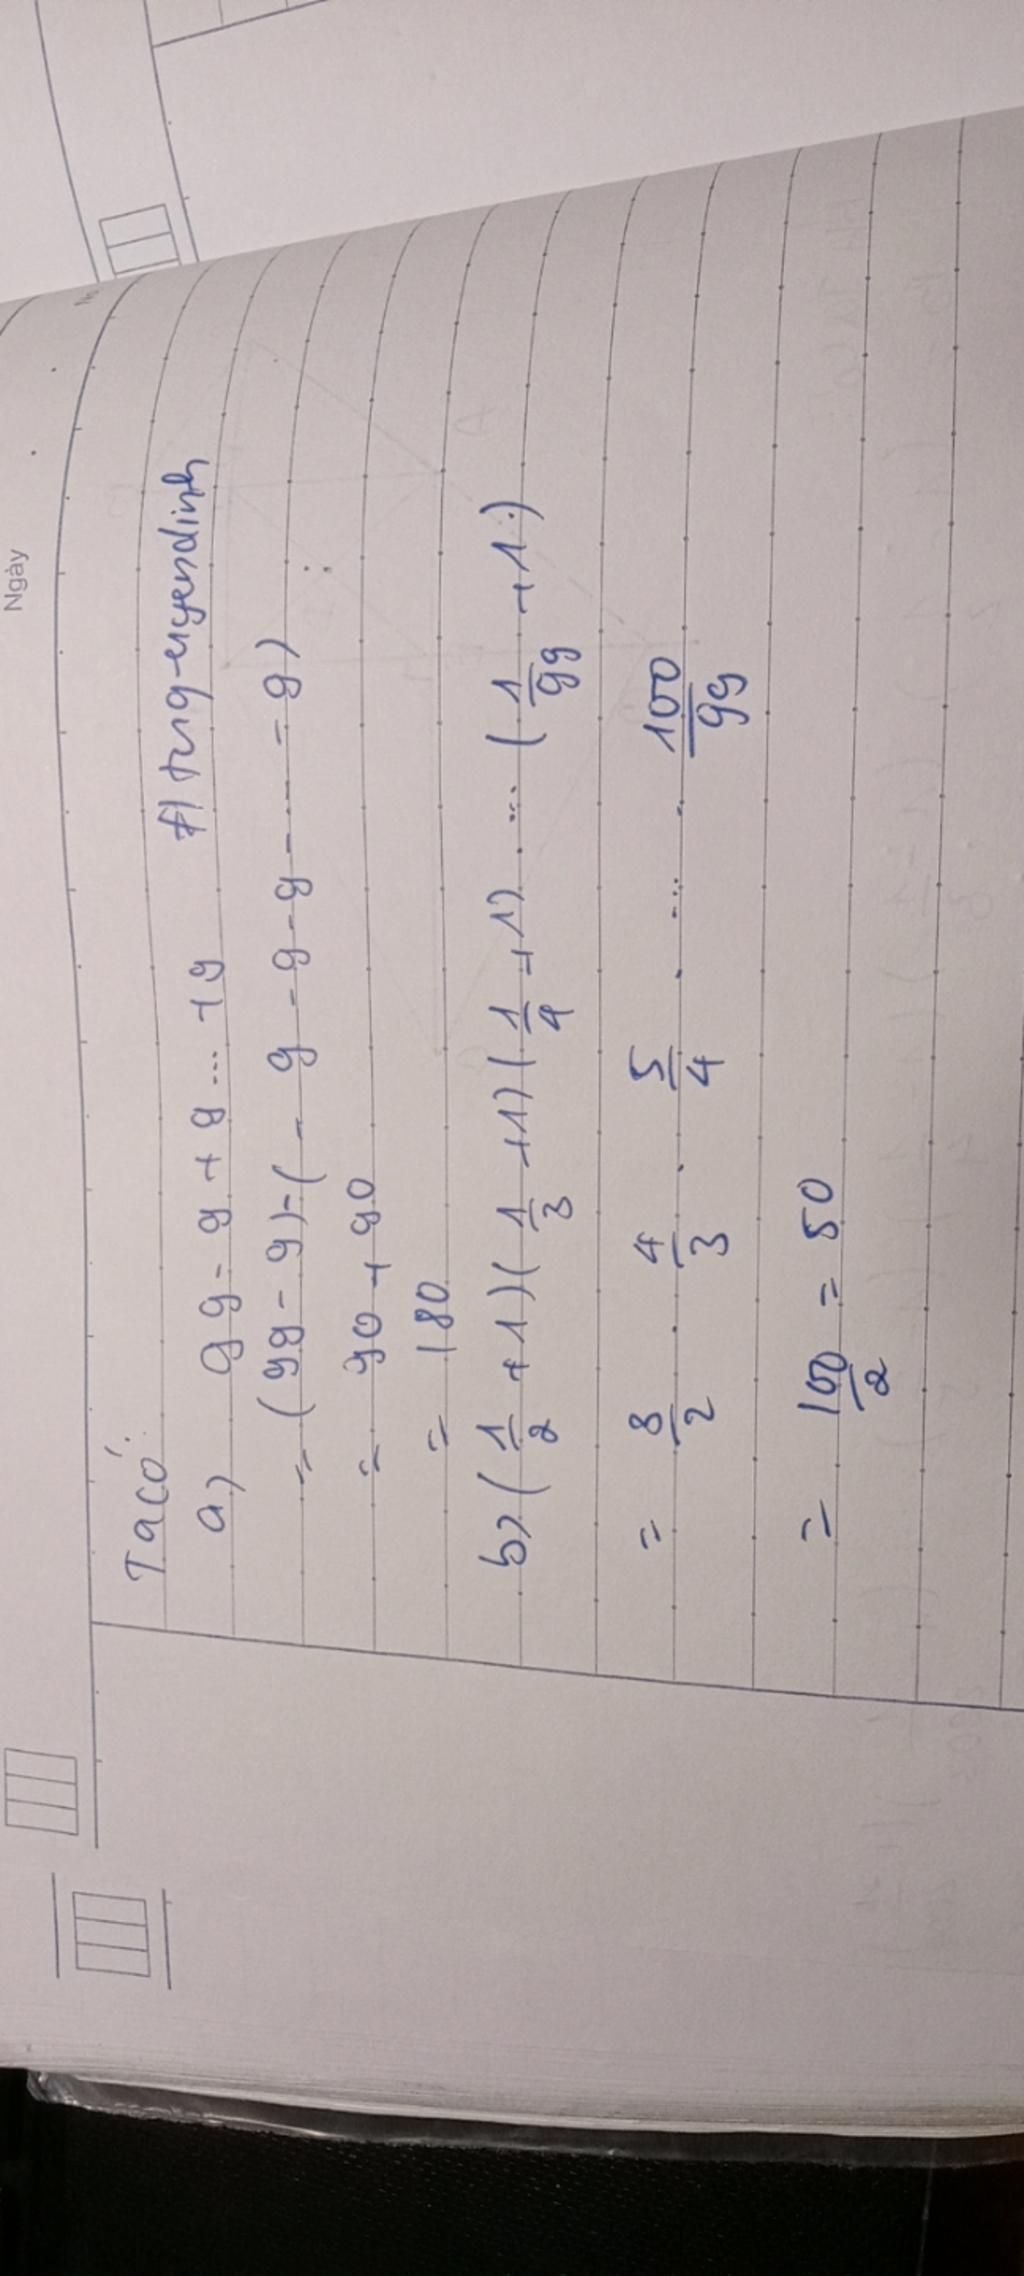 Ngày
Ta có:
a) 99 - 9 + 9 ... + 9
= (99 - 9) - ( - 9 - 9 - 9 - .... - 9)
= 90 + 90
= 180
b) (1/2 + 1)(1/3 + 1)(1/4 + 1) . ... (1/99 + 1)
= 3/2 . 4/3 . 5/4 . ... . 100/99
= 100/2 = 50